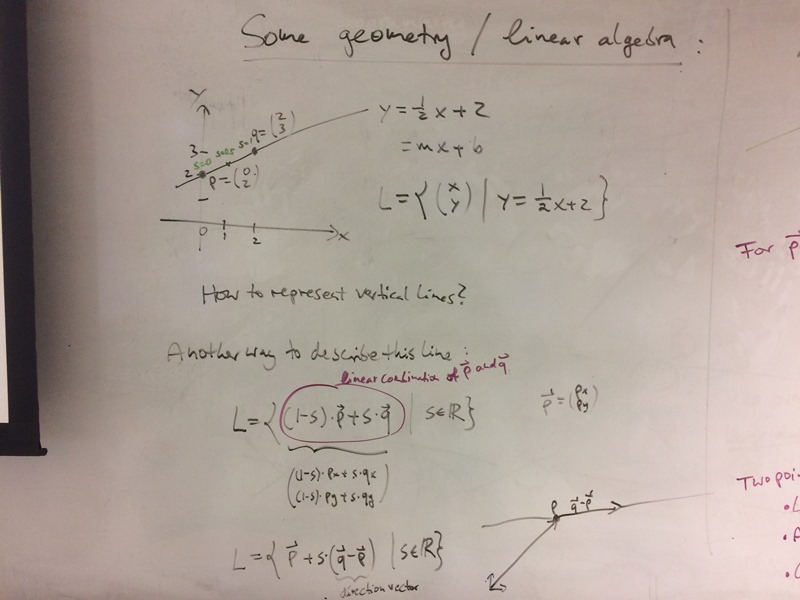 Some geometry / linear algebra :
Y
3
2
s=0 s=0.5 s=1
q = (2 3)
p = (0 2)
0 1 2 x
y = 1/2 x + 2
= mx + b
L = { (x y) | y = 1/2 x + 2 }
How to represent vertical lines?
Another way to describe this line :
linear combination of p⃗ and q⃗
L = { (1-s)·p⃗ + s·q⃗ | s∈ℝ }
p⃗ = (px py)
((1-s)·px + s·qx
(1-s)·py + s·qy)
p q⃗-p⃗
L = { p⃗ + s·(q⃗-p⃗) | s∈ℝ }
direction vector
For p⃗
Two poi